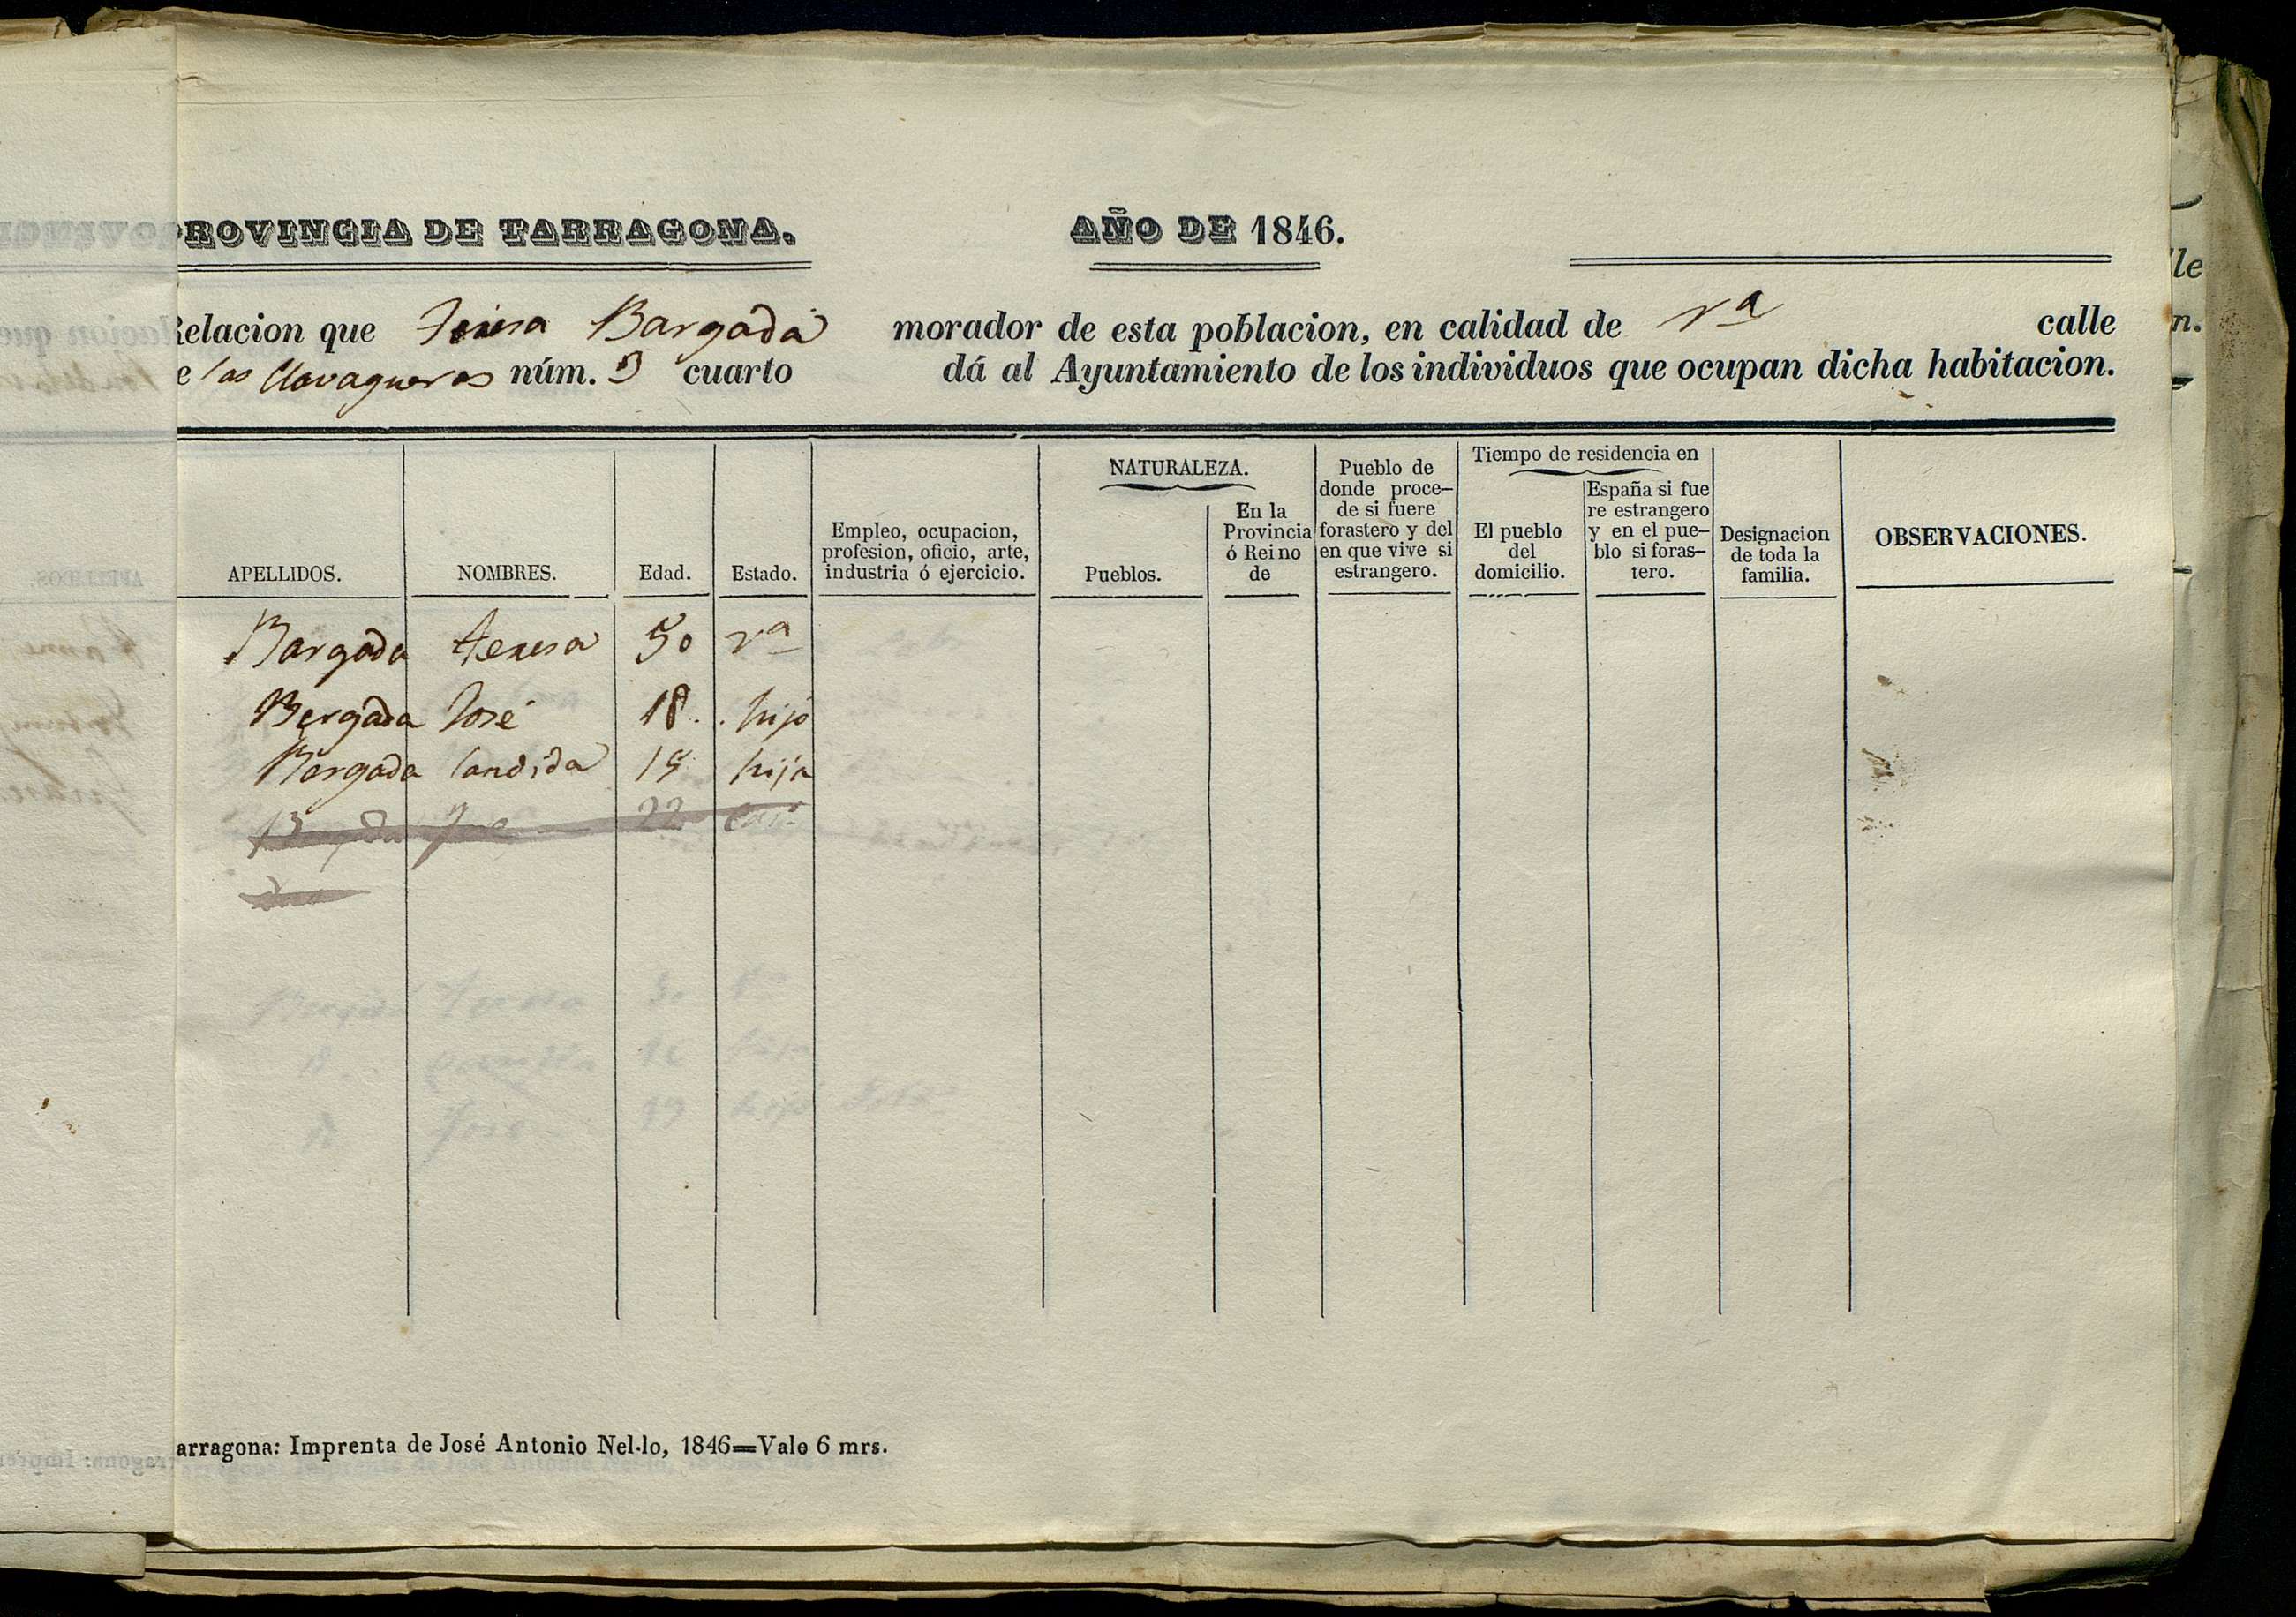 ROVINCIA DE TARRAGONA. AÑO DE 1846.
elacion que Teresa Bargada morador de esta poblacion, en calidad de Vª calle
e las Clavagueras núm. 3 cuarto dá al Ayuntamiento de los individuos que ocupan dicha habitacion.
APELLIDOS. NOMBRES. Edad. Estado. Empleo, ocupacion, profesion, oficio, arte, industria ó ejercicio. NATURALEZA. Pueblos. En la Provincia ó Reino de Pueblo de donde proce-de si fuere forastero y del en que vive si estrangero. Tiempo de residencia en El pueblo del domicilio. España si fue re estrangero y en el pue-blo si foras-tero. Designacion de toda la familia. OBSERVACIONES.
Bargada teresa 50 vª
Bergada José 18. hijo
Bergada Candida 15 hija
22
Teresa
hija
José hijo
arragona: Imprenta de José Antonio Nel·lo, 1846=Vale 6 mrs.
lle
n.
APELLIDOS.